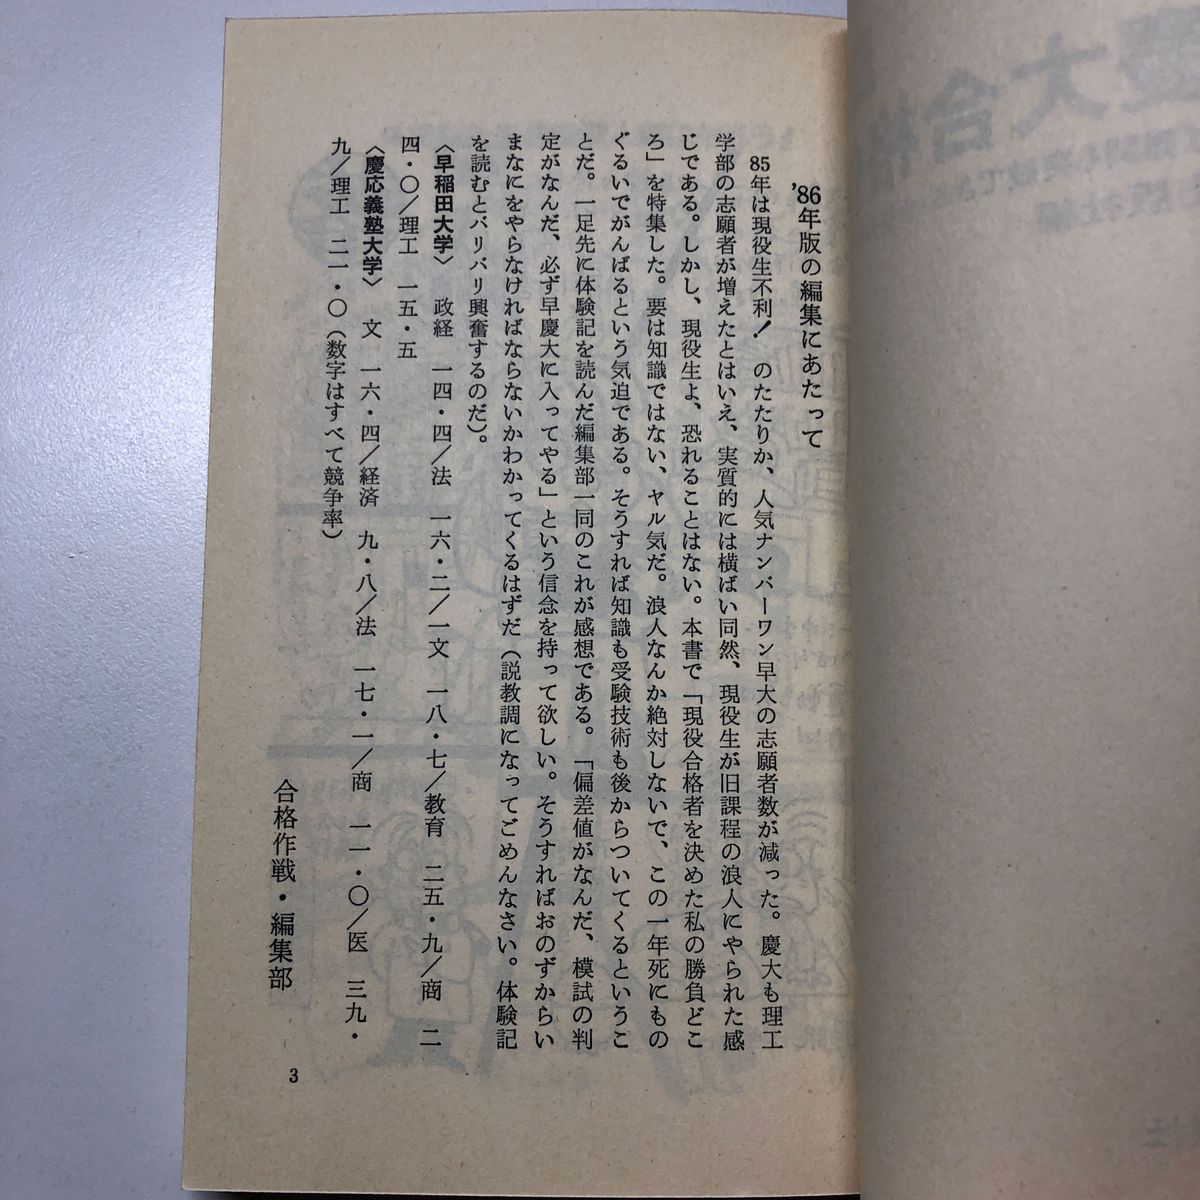 '86年版の編集にあたって
85年は現役生不利! のたたりか、人気ナンバーワン早大の志願者数が減った。慶大も理工
学部の志願者が増えたとはいえ、実質的には横ばい同然、現役生が旧課程の浪人にやられた感
じである。しかし、現役生よ、恐れることはない。本書で「現役合格者を決めた私の勝負どこ
ろ」を特集した。要は知識ではない、ヤル気だ。浪人なんか絶対しないで、この一年死にもの
ぐるいでがんばるという気迫である。そうすれば知識も受験技術も後からついてくるというこ
とだ。一足先に体験記を読んだ編集部一同のこれが感想である。「偏差値がなんだ、模試の判
定がなんだ、必ず早慶大に入ってやる」という信念を持って欲しい。そうすればおのずからい
まなにをやらなければならないかわかってくるはずだ(説教調になってごめんなさい。体験記
を読むとバリバリ興奮するのだ)。
〈早稲田大学〉 政経 一四・四/法 一六・二/一文 一八・七/教育 二五・九/商 二
四・〇/理工 一五・五
〈慶応義塾大学〉 文 一六・四/経済 九・八/法 一七・一/商 一一・〇/医 三九・
九/理工 二一・〇(数字はすべて競争率)
合格作戦・編集部
3